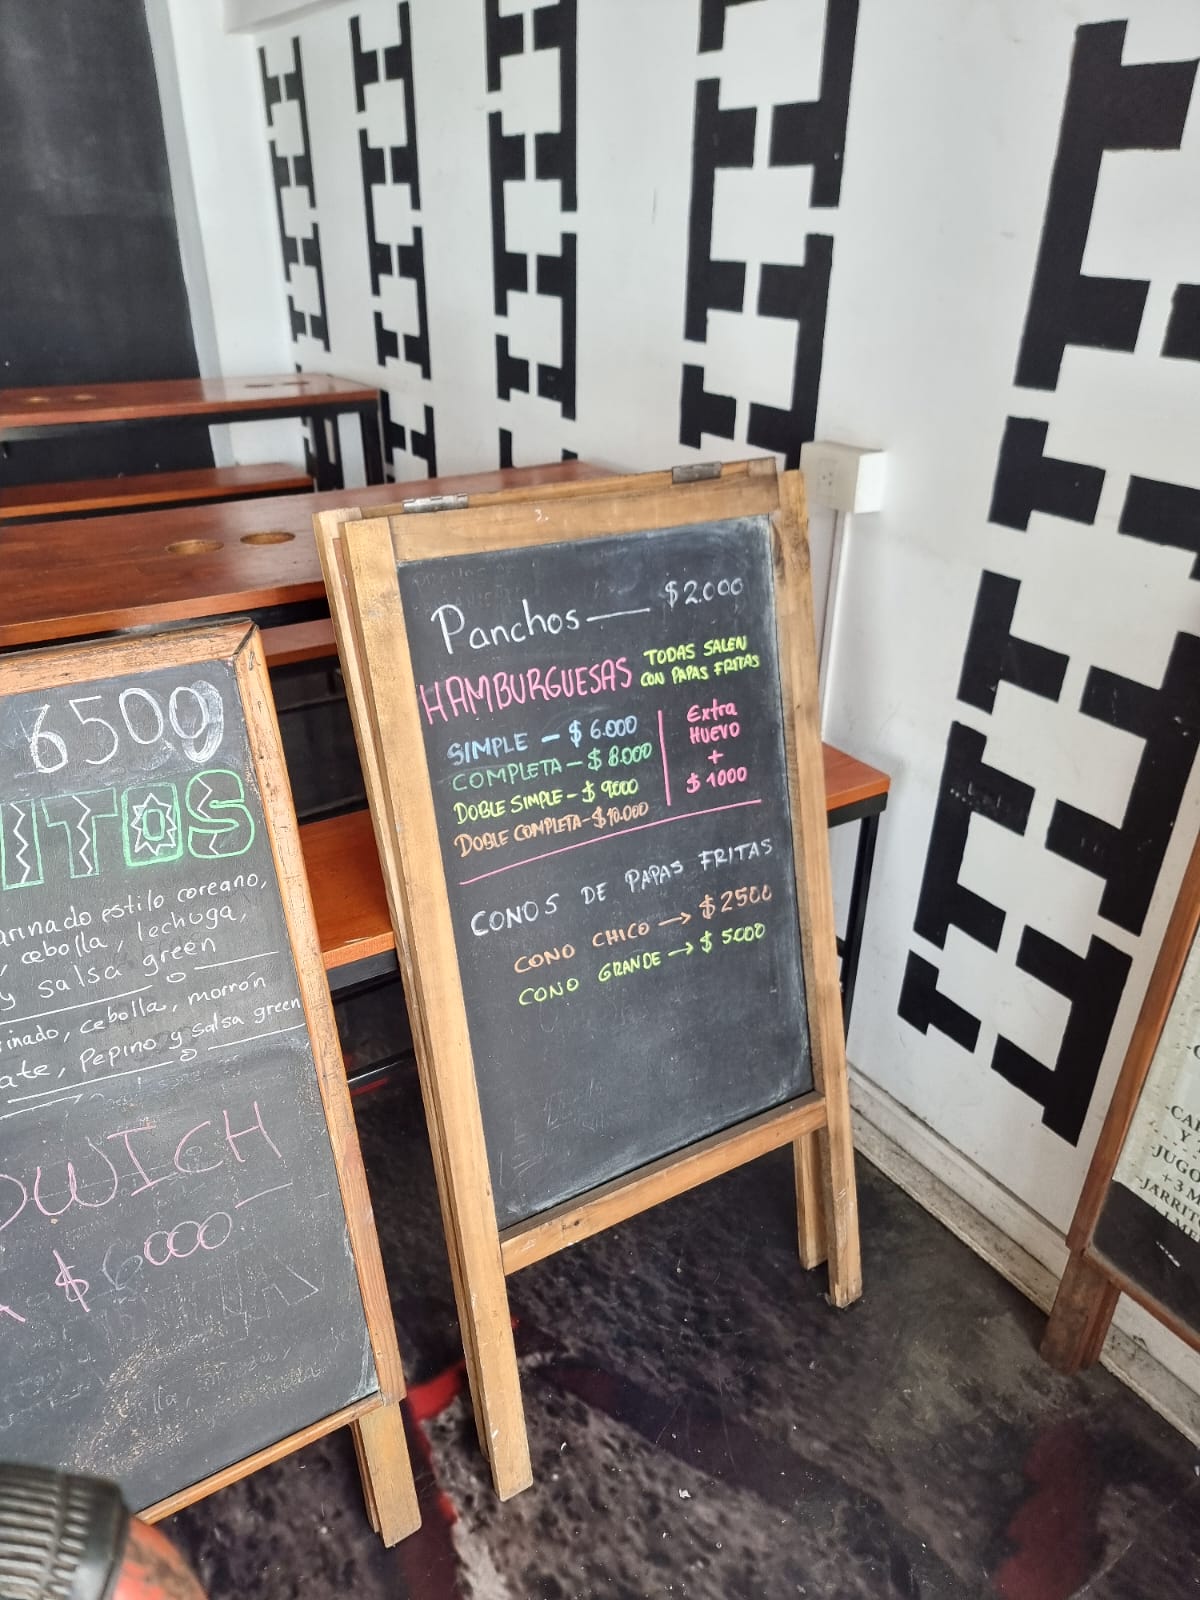 6500
ITOS
marinado estilo coreano,
, cebolla, lechuga,
y salsa green
cebolla, morrón
Pepino y salsa green
DWICH
$ 6000
Panchos — $2.000
HAMBURGUESAS
TODAS SALEN
CON PAPAS FRITAS
SIMPLE - $ 6.000
COMPLETA - $ 8.000
DOBLE SIMPLE - $ 9.000
DOBLE COMPLETA - $ 10.000
Extra
HUEVO
+
$ 1000
CONOS DE PAPAS FRITAS
CONO CHICO → $ 2500
CONO GRANDE → $ 5000
Y
JUGO
+ 3 M